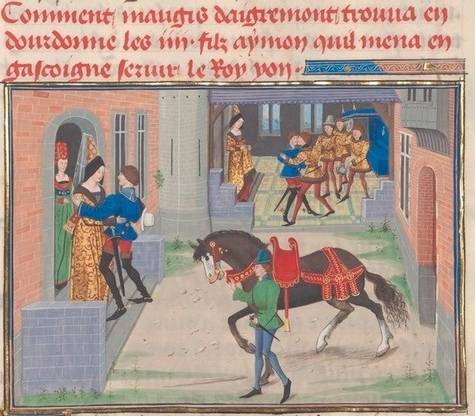 Comment maugis daigremont trouua en
dourdonne les iiii filz aymon quil mena en
gascoigne seruir le Roy yon.